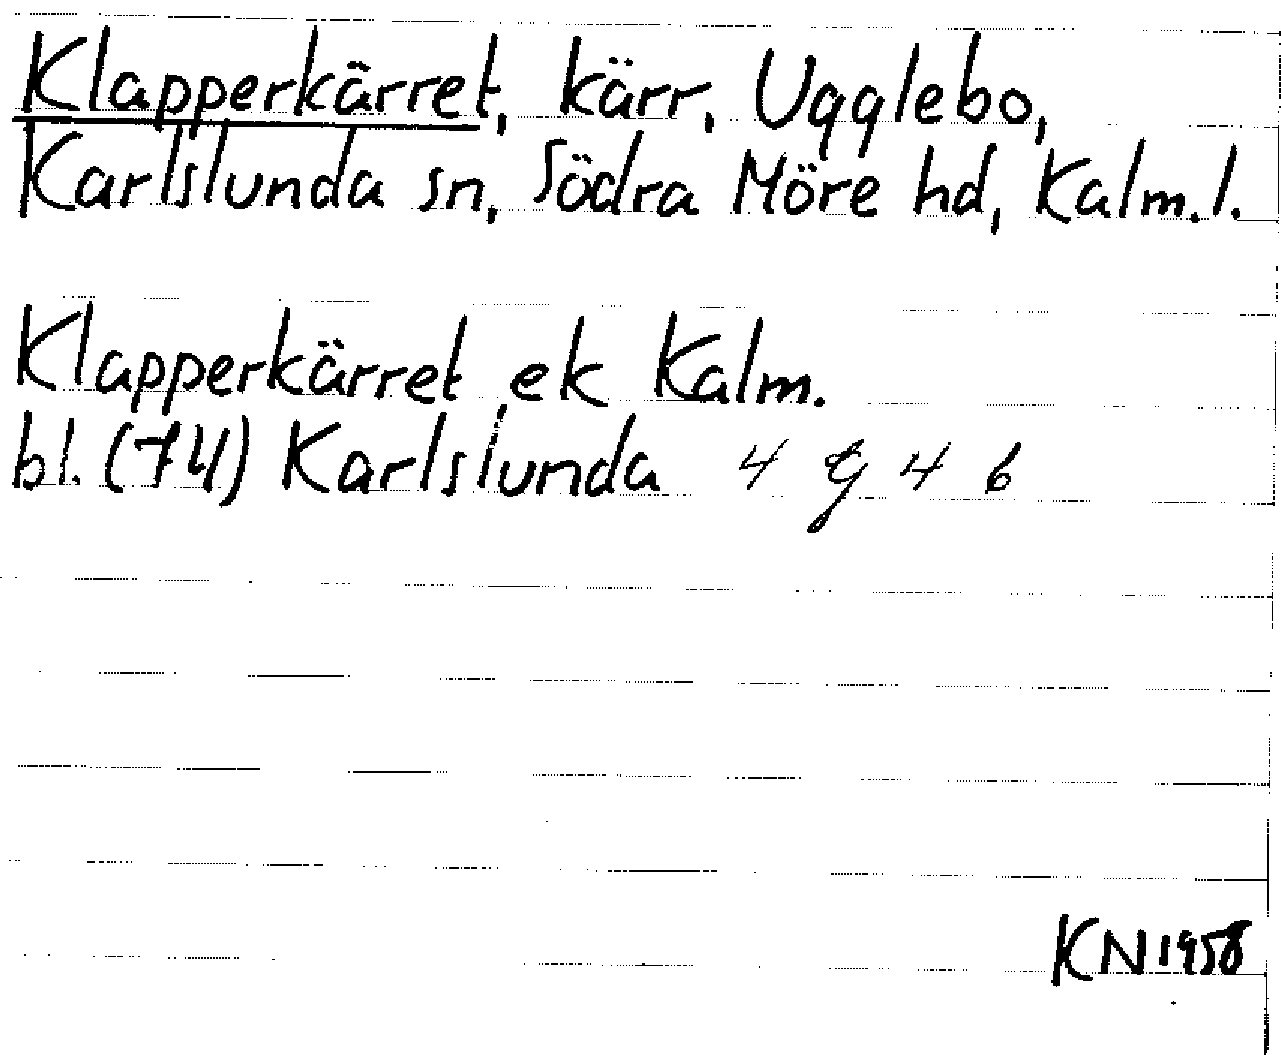 Klapperkärret, kärr, Ugglebo,
Karlslunda sn, Södra Möre hd, Kalm.l.
Klapperkärret, ek Kalm.
bl. (74) Karlslunda 4 G 4 b
KN 1958